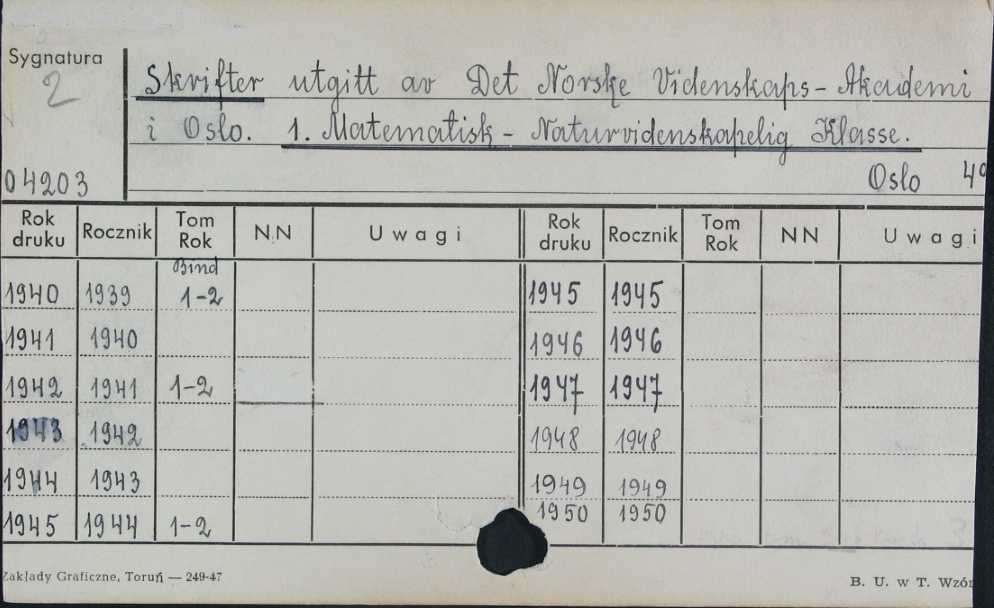 Sygnatura
2
Skrifter utgitt av Det Norske Videnskaps-Akademi
i Oslo. 1. Matematisk-Naturvidenskapelig Klasse.
04203
Oslo 4°
Rok druku Rocznik Tom Rok NN Uwagi Rok druku Rocznik Tom Rok NN Uwagi
Bind
1940 1939 1-2 1945 1945
1941 1940 1946 1946
1942 1941 1-2 1947 1947
1943 1942 1948 1948
1944 1943 1949 1949
1945 1944 1-2 1950 1950
Zakłady Graficzne, Toruń — 249-47
B. U. w T. Wzór